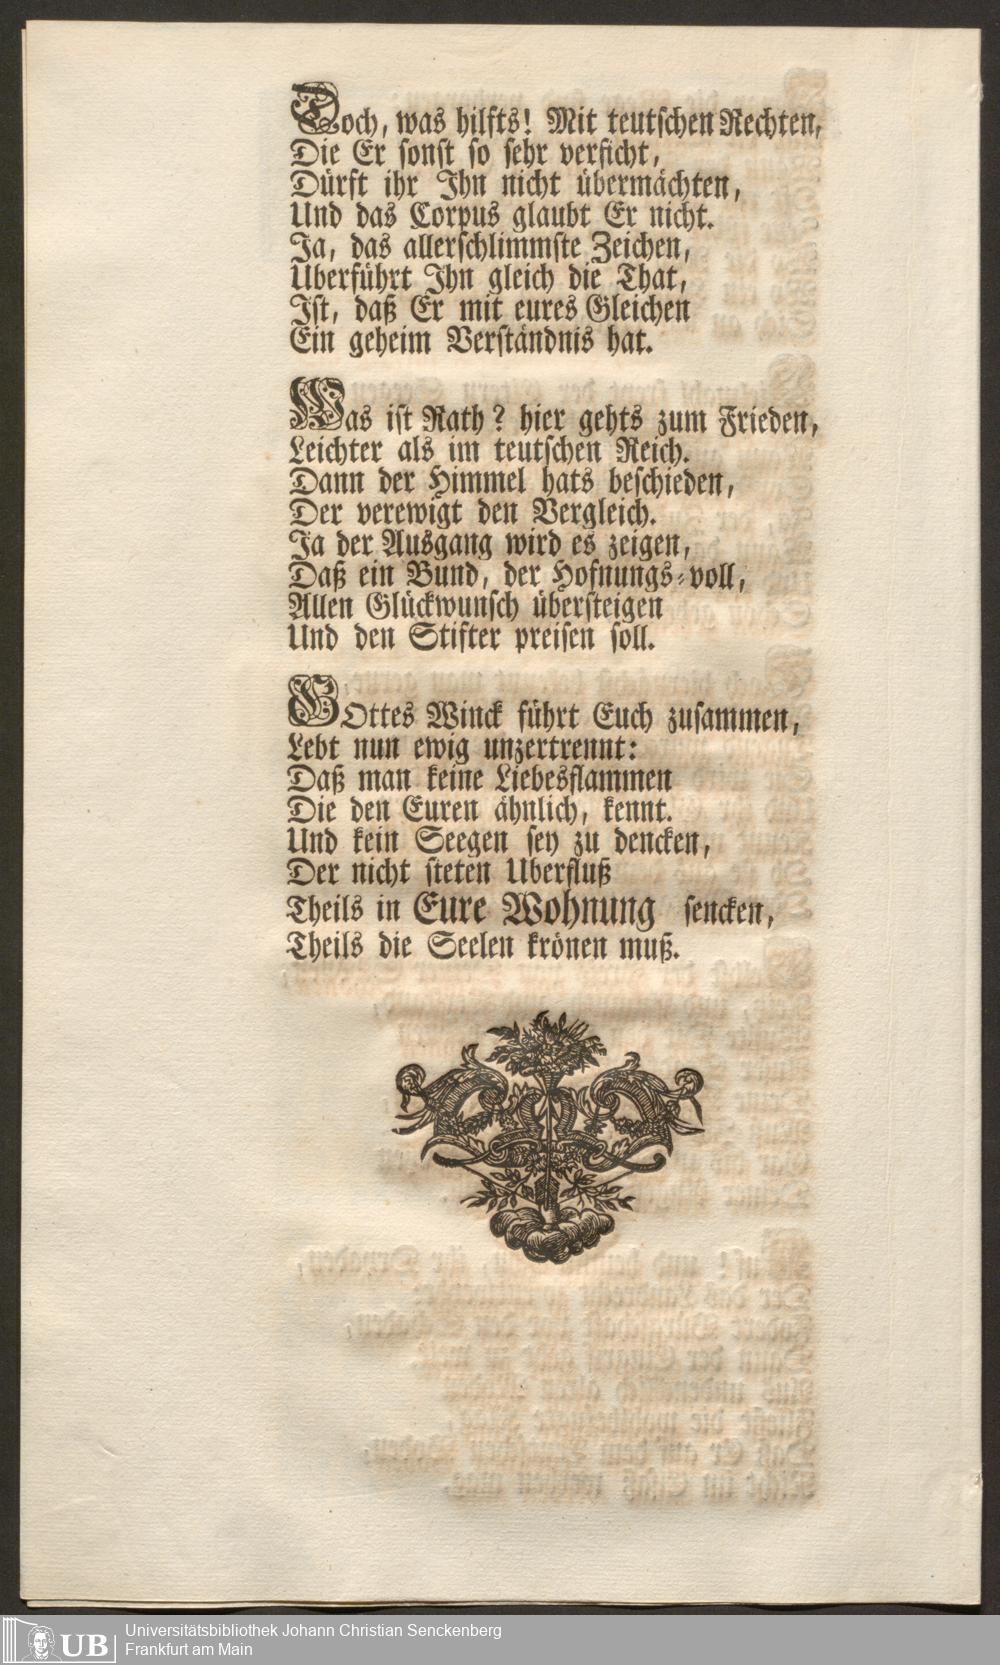 Doch, was hilfts! Mit teutschen Rechten,
Die Er sonst so sehr verficht,
Dürft ihr Ihn nicht übermächten,
Und das Corpus glaubt Er nicht.
Ja, das allerschlimmste Zeichen,
Uberführt Ihn gleich die That,
Ist, daß Er mit eures Gleichen
Ein geheim Verständnis hat.
Was ist Rath? hier gehts zum Frieden,
Leichter als im teutschen Reich.
Dann der Himmel hats beschieden,
Der verewigt den Vergleich.
Ja der Ausgang wird es zeigen,
Daß ein Bund, der Hofnungs-voll,
Allen Glückwunsch übersteigen
Und den Stifter preisen soll.
GOttes Winck führt Euch zusammen,
Lebt nun ewig unzertrennt:
Daß man keine Liebesflammen
Die den Euren ähnlich, kennt.
Und kein Seegen sey zu dencken,
Der nicht steten Uberfluß
Theils in Eure Wohnung sencken,
Theils die Seelen krönen muß.
UB Universitätsbibliothek Johann Christian Senckenberg
Frankfurt am Main